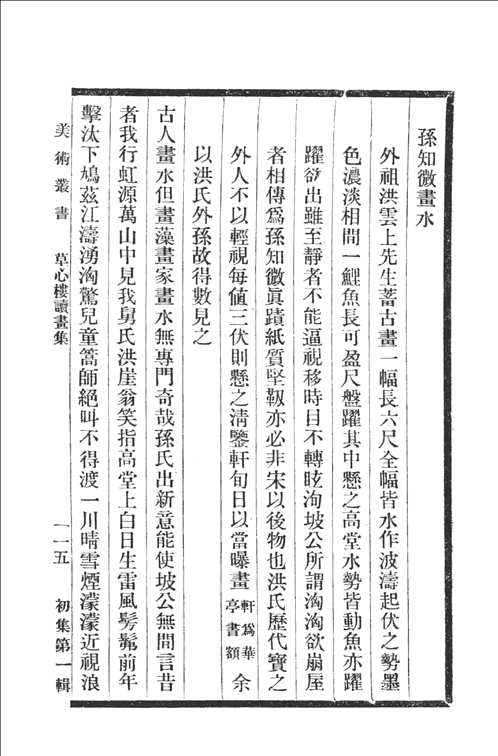 孫知微畫水
外祖洪雲上先生蓄古畫一幅長六尺全幅皆水作波濤起伏之勢墨
色濃淡相間一鯉魚長可盈尺盤躍其中懸之高堂水勢皆動魚亦躍
躍欲出雖至靜者不能逼視移時目不轉眩洵坡公所謂洶洶欲崩屋
者相傳爲孫知微眞蹟紙質堅韌亦必非宋以後物也洪氏歷代寶之
外人不以輕視每値三伏則懸之淸鑒軒旬日以當曝畫軒爲華亭書額余
以洪氏外孫故得數見之
古人畫水但畫藻畫家畫水無專門奇哉孫氏出新意能使坡公無間言昔
者我行虹源萬山中見我舅氏洪崖翁笑指高堂上白日生雷風髣髴前年
擊汰下鳩茲江濤湧洶驚兒童篙師絕叫不得渡一川晴雪煙濛濛近視浪
美術叢書 草心樓讀畫集 一一五 初集第一輯